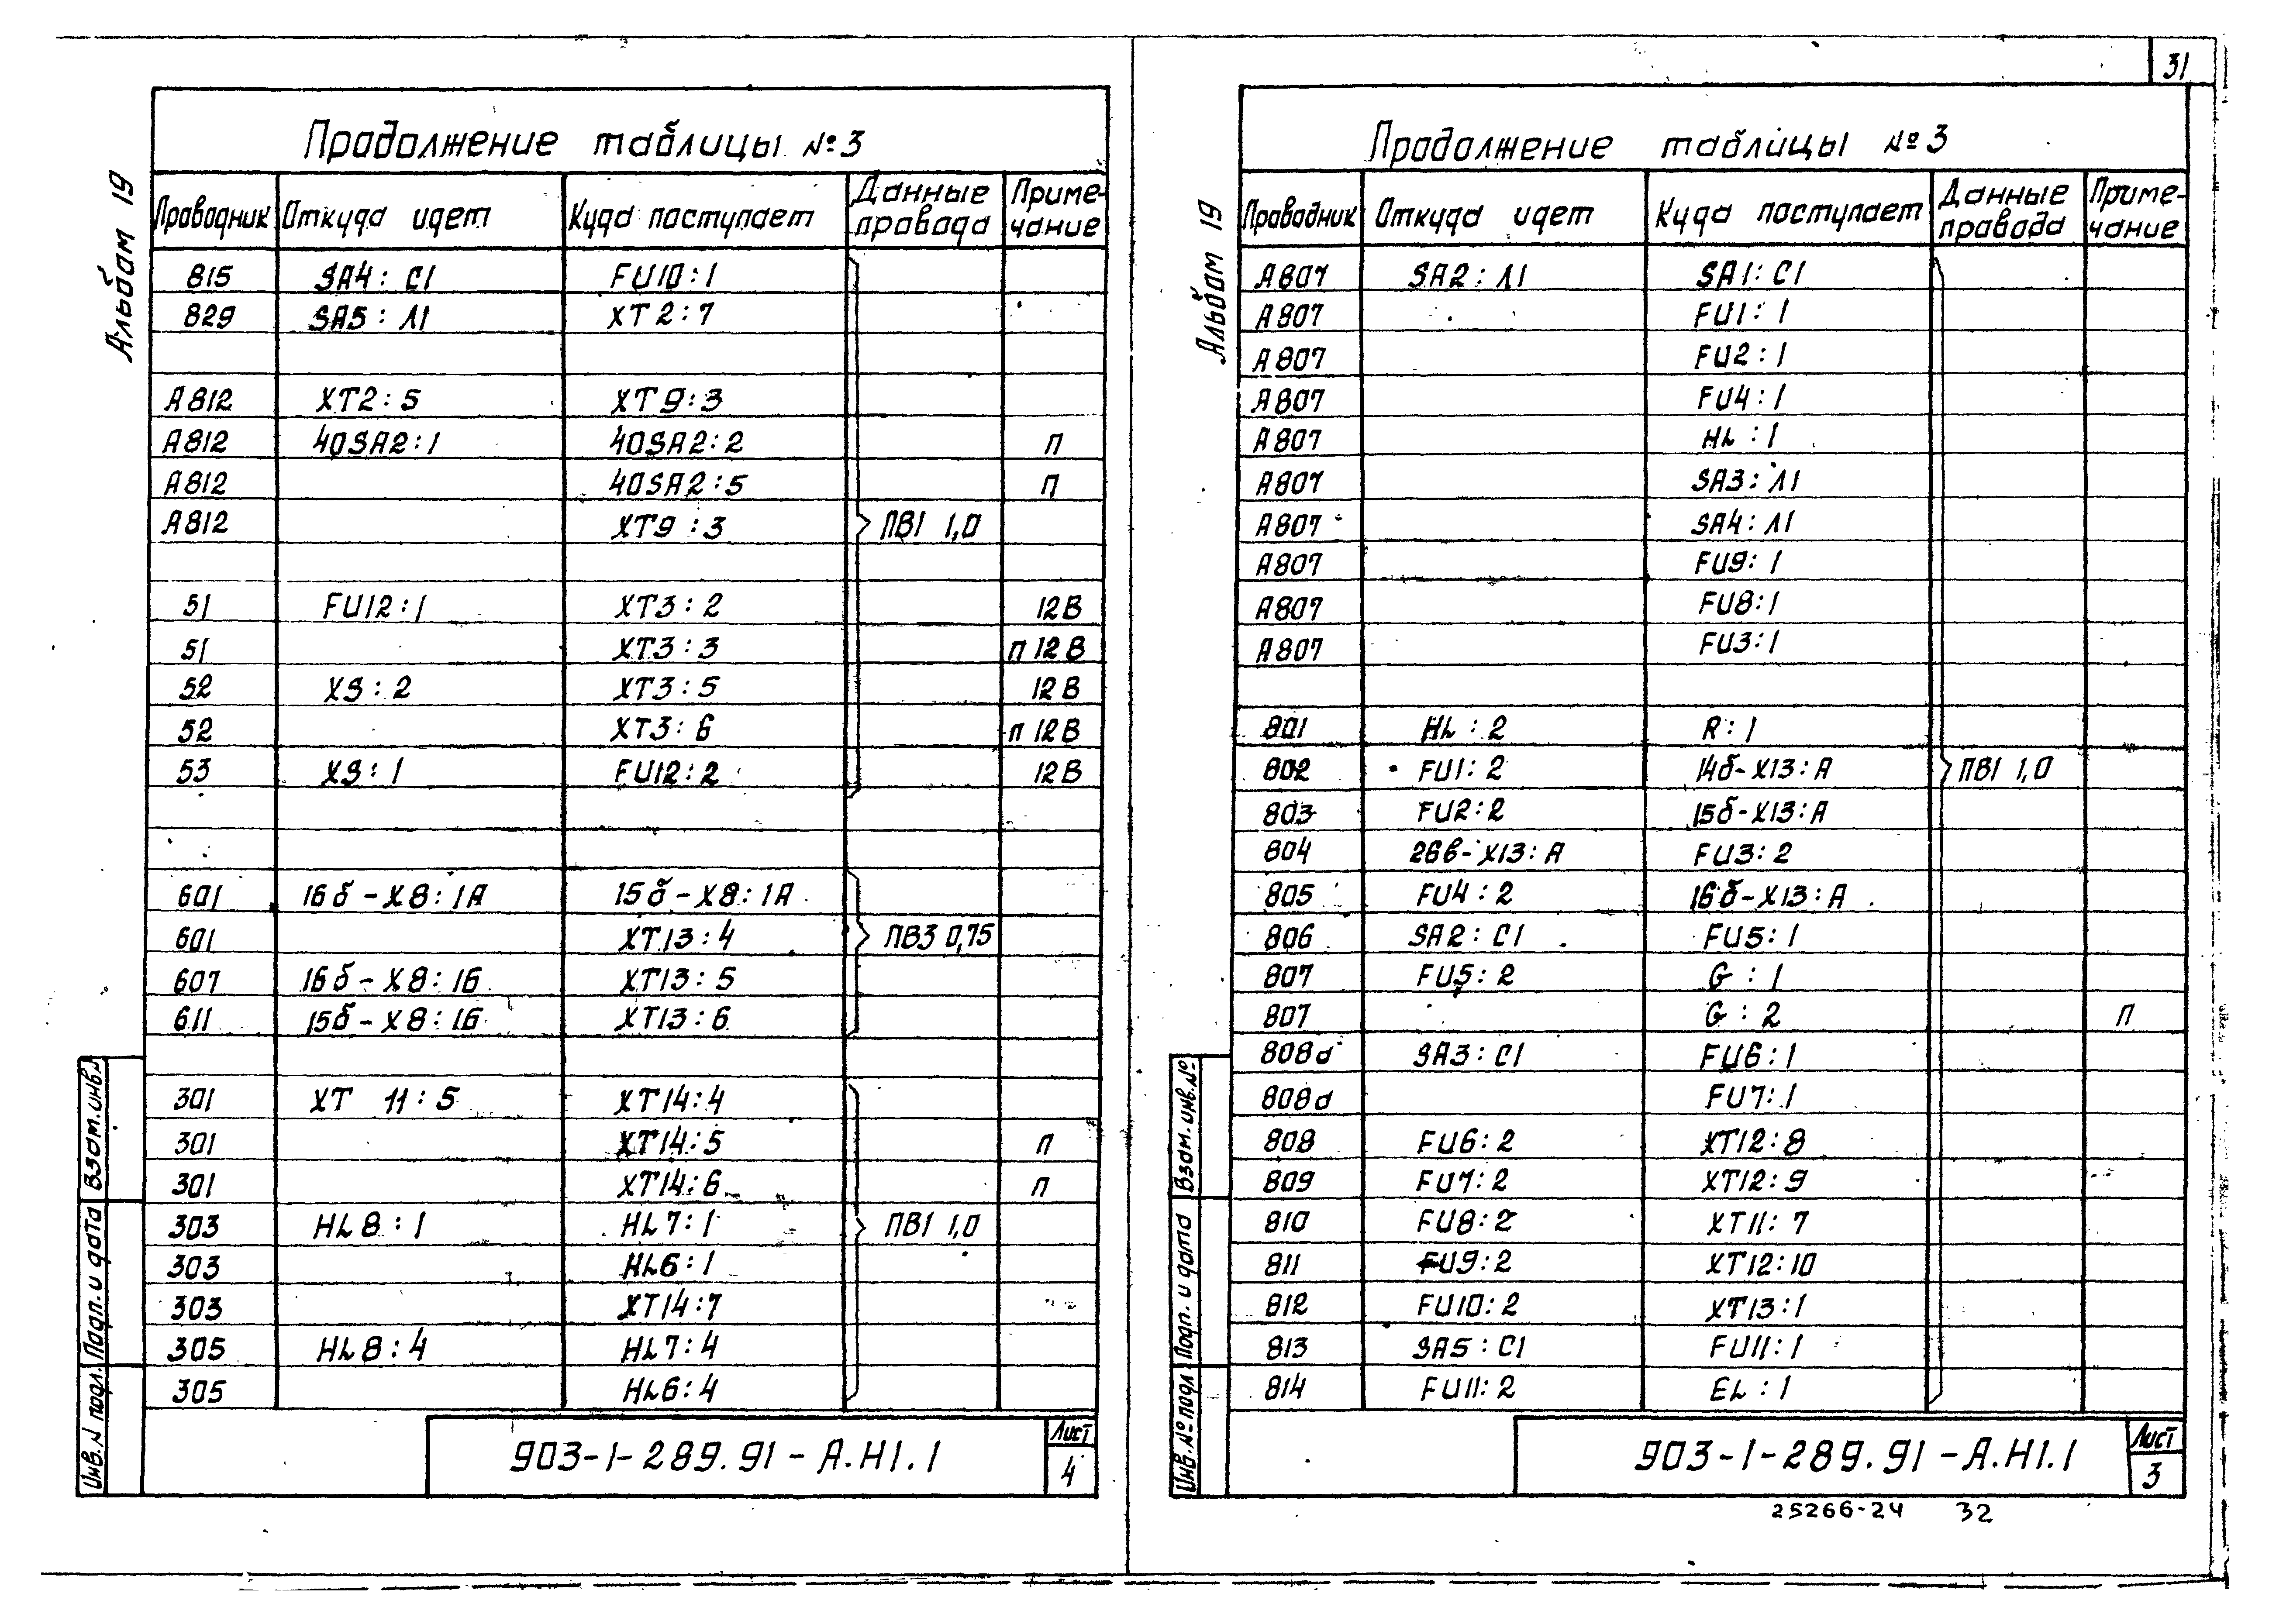 31
Альбом 19
Продолжение таблицы №3
Проводник Откуда идет Куда поступает Данные провода Примечание
815 SA4: C1 FU10:1
829 SA5: Л1 XT2:7
A812 XT2:5 XT9:3
A812 40SA2:1 40SA2:2 П
A812 40SA2:5 П
A812 XT9:3 ПВ1 1,0
51 FU12:1 XT3:2 12В
51 XT3:3 П 12В
52 XS:2 XT3:5 12В
52 XT3:6 П 12В
53 XS:1 FU12:2 12В
601 16б-X8:1А 15б-X8:1А
601 XT13:4 ПВ3 0,75
607 16б-X8:1Б XT13:5
611 15б-X8:1Б XT13:6
301 XT 11:5 XT14:4
301 XT14:5 П
301 XT14:6 П
303 HL8:1 HL7:1 ПВ1 1,0
303 HL6:1
303 XT14:7
305 HL8:4 HL7:4
305 HL6:4
Инв.N подл. Подп. и дата Взам.инв.N
903-1-289.91-А.Н1.1
Лист
4
Альбом 19
Продолжение таблицы №3
Проводник Откуда идет Куда поступает Данные провода Примечание
A807 SA2: Л1 SA1: C1
A807 FU1:1
A807 FU2:1
A807 FU4:1
A807 HL:1
A807 SA3: Л1
A807 SA4: Л1
A807 FU9:1
A807 FU8:1
A807 FU3:1
801 HL:2 R:1
802 FU1:2 14б-X13:А ПВ1 1,0
803 FU2:2 15б-X13:А
804 26в-X13:А FU3:2
805 FU4:2 16б-X13:А
806 SA2: C1 FU5:1
807 FU5:2 G:1
807 G:2 П
808а SA3: C1 FU6:1
808а FU7:1
808 FU6:2 XT12:8
809 FU7:2 XT12:9
810 FU8:2 XT11:7
811 FU9:2 XT12:10
812 FU10:2 XT13:1
813 SA5: C1 FU11:1
814 FU11:2 EL:1
Инв.№ подл Подп. и дата Взам.инв.№
903-1-289.91-А.Н1.1
Лист
3
25266-24 32